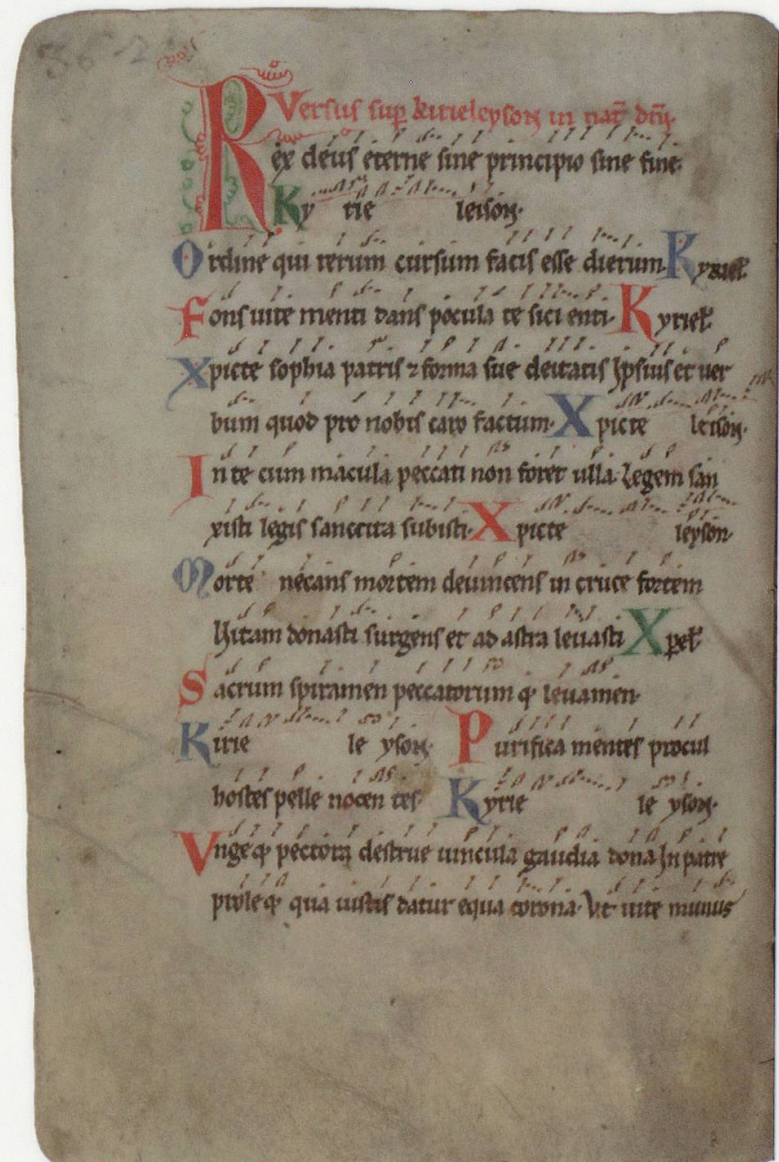 Versus sup kirieleyson in nat dñi.
Rex deus eterne sine principio sine fine.
Ky rie leison.
Ordine qui rerum cursum facis esse dierum. Kyriel.
Fons uite menti dans pocula te sici enti. Kyriel.
Xpicte sophia patris ⁊ forma sue deitatis Ipsius et uer
bum quod pro nobis caro factum. Xpicte leison.
In te cum macula peccati non foret ulla. Legem san
xisti legis sanccita subisti. Xpicte leyson.
Morte necans mortem deuincens in cruce fortem
Uitam donasti surgens et ad astra leuasti. Xpel.
Sacrum spiramen peccatorum q; leuamen.
Kirie le yson. Purifica mentes procul
hostes pelle nocen tes. Kyrie le yson.
Unge q; pectora destrue uincula gaudia dona In patre
prole q; qua iustis datur equa corona. Ut uite munus